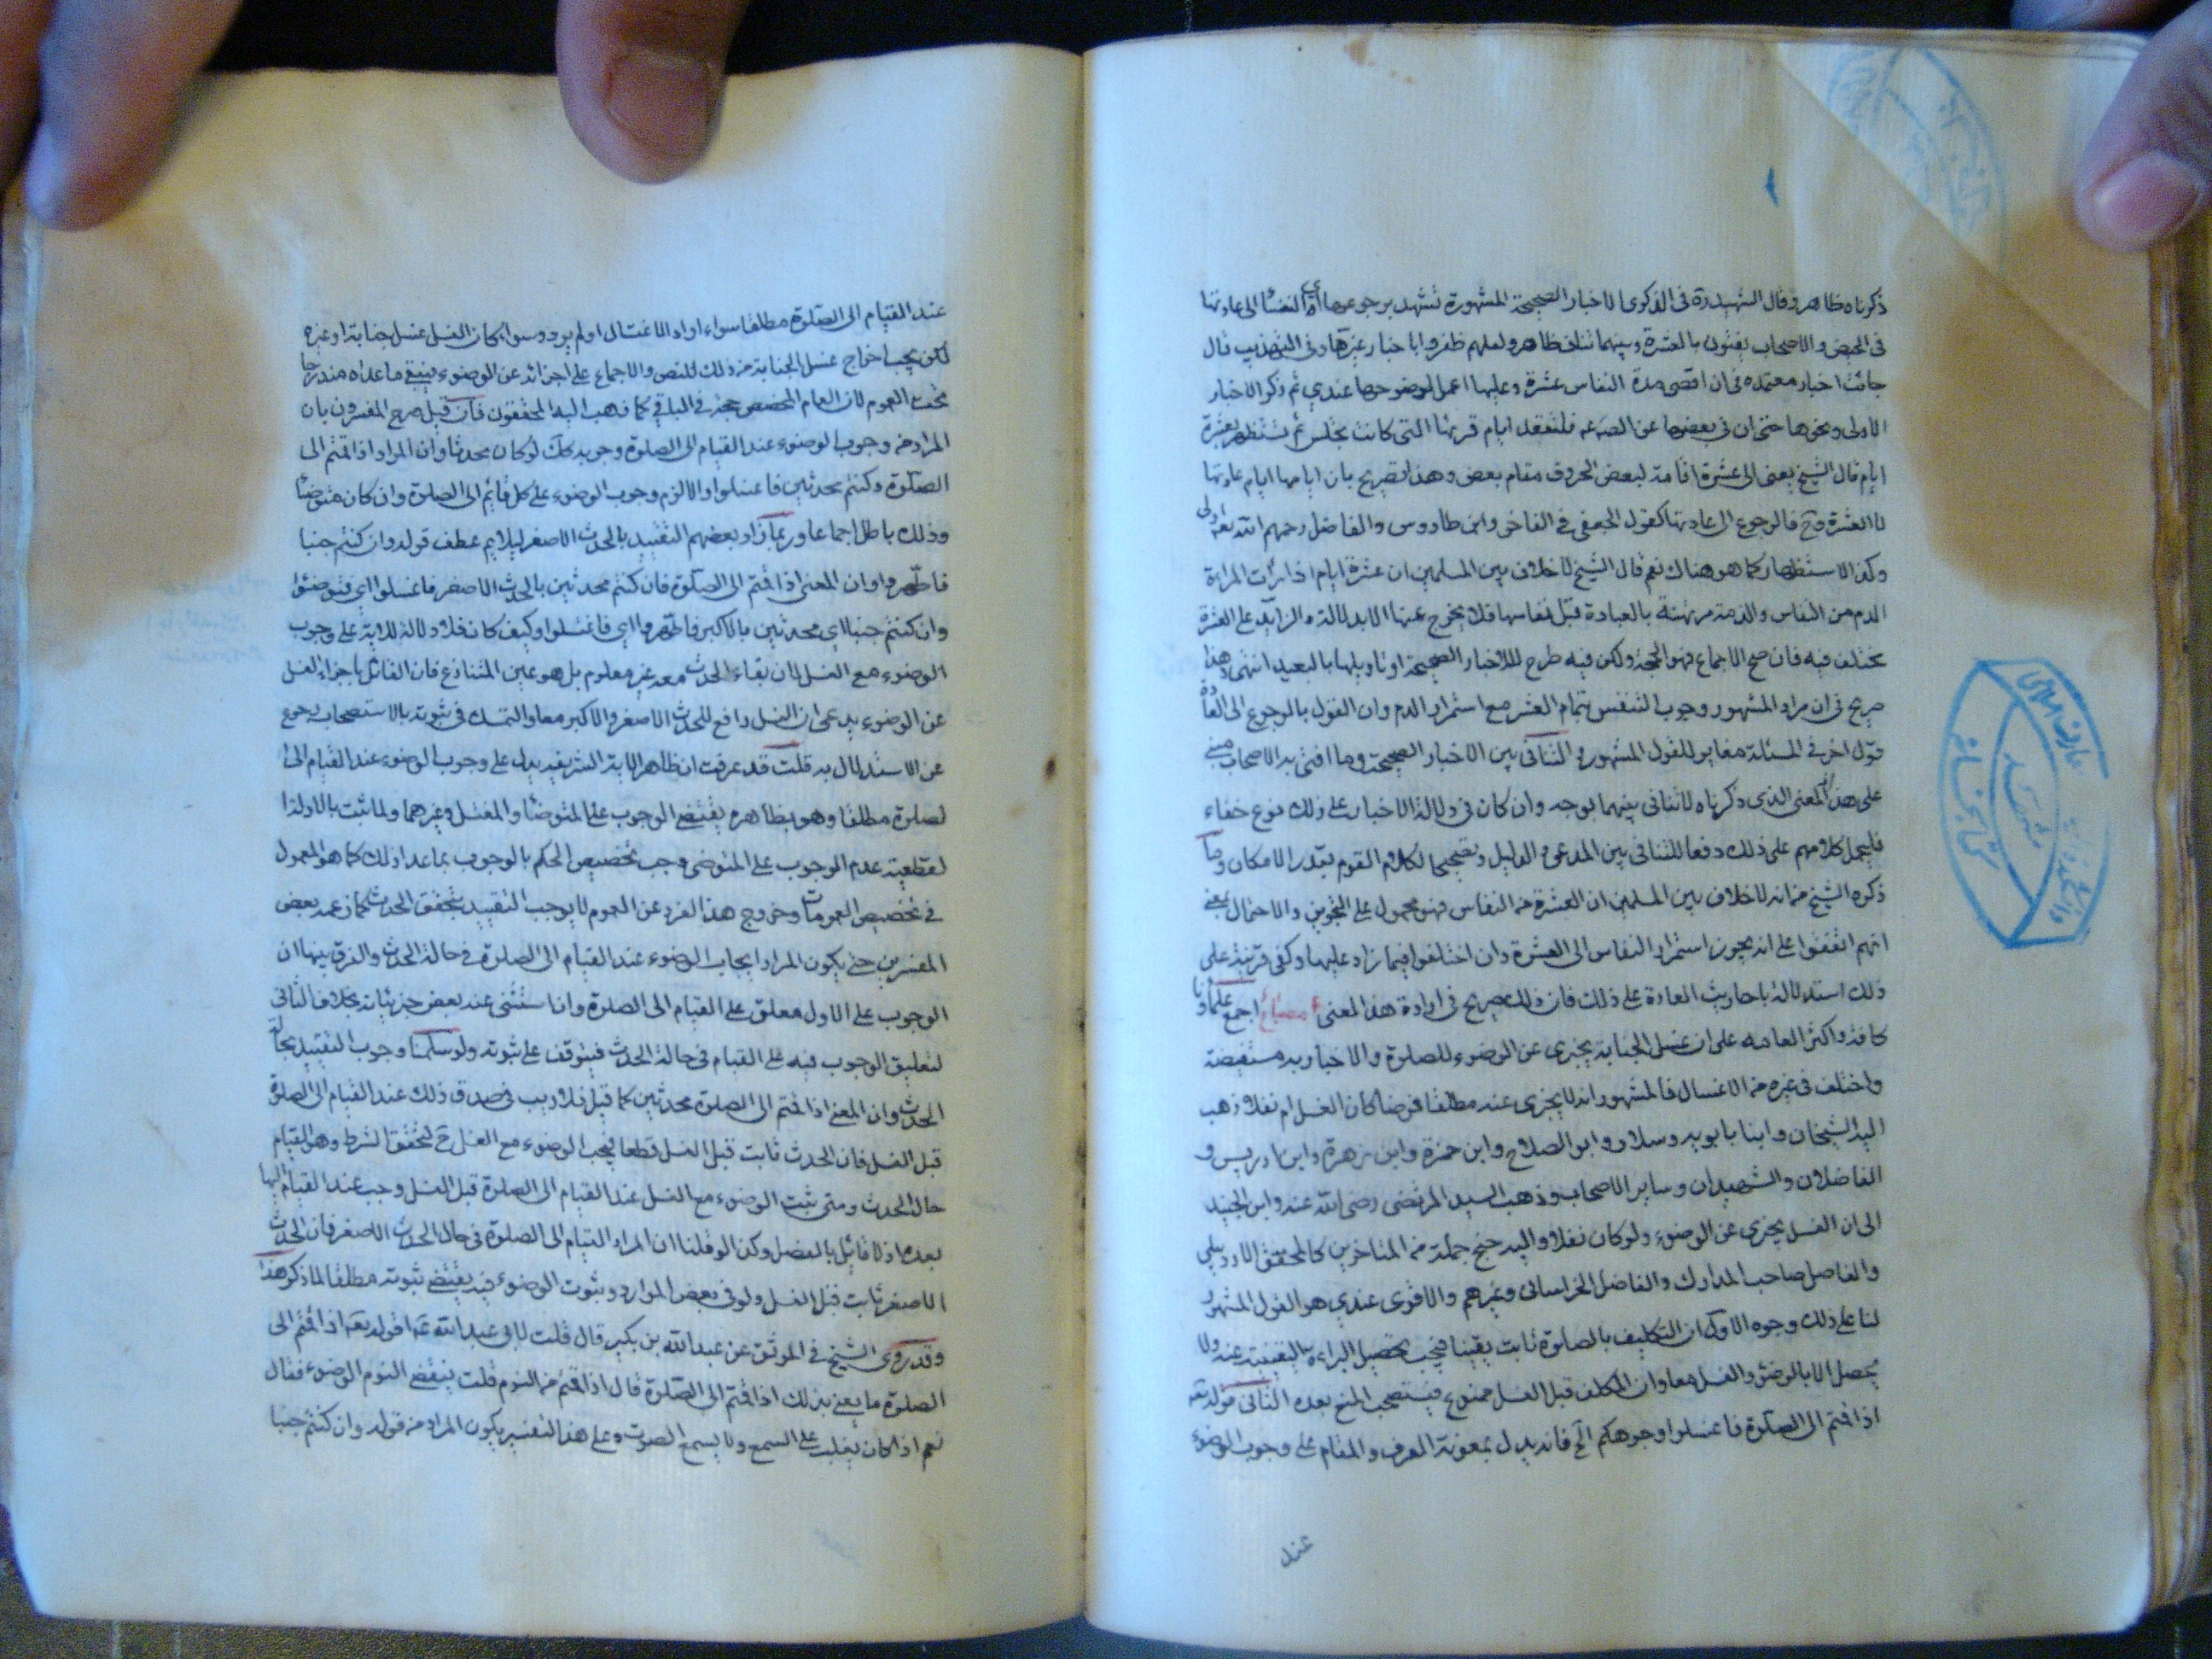 ذكرناه ظاهر وقال الشهيد ره في الذكرى الاخبار الصحيحة المشهورة تشهد برجوعها اى النفساء الى عادتها
في الحيض والاصحاب يفتون بالعشرة وبينهما تناف ظاهر ولعلهم ظفروا باخبار غيرها وفي التهذيب قال
جائت اخبار معتمده في ان اقصى مدة النفاس عشرة وعليها اعمل لوضوحها عندي ثم ذكر الاخبار
الاولى ونحوها حتى ان في بعضها عن الص عه فلتقعد ايام قرئها التي كانت تجلس ثم تستظهر بعشرة
ايام قال الشيخ يعنى الى عشرة اقامة لبعض الحروف مقام بعض وهذا تصريح بان ايامها ايام عادتها
لا العشرة وح فالرجوع الى عادتها كقول الجعفي في الفاخر وابن طاووس والفاضل رحمهم الله تعه اولى
وكذا الاستظهار كما هو هناك نعم قال الشيخ لا خلاف بين المسلمين ان عشرة ايام اذا رأت المراءة
الدم من النفاس والذمة مرتهنة بالعبادة قبل نفاسها فلا يخرج عنها الا بدلالة والزايد على العشرة
مختلف فيه فان صح الاجماع فهو الحجة ولكن فيه طرح للاخبار الصحيحة او تاويلها بالبعيد انتهى وهذا
صريح في ان مراد المشهور وجوب التنفس بتمام العشر مع استمرار الدم وان القول بالرجوع الى العادة
قول اخر في المسئلة مغاير للقول المشهور والتنافي بين الاخبار الصحيحة وما افتى به الاصحاب مبنى
على هذا المعنى الذى ذكرناه لا تنافى بينهما بوجه وان كان في دلالة الاخبار على ذلك نوع خفاء
فليحمل كلامهم على ذلك دفعا للتنافى بين المدعى والدليل وتصحيحا لكلام القوم بقدر الامكان وما
ذكره الشيخ من انه لا خلاف بين المسلمين ان العشرة من النفاس فهو محمول على التجويز والاحتمال بمعنى
انهم اتفقوا على انه يجوز استمرار النفاس الى العشرة وان اختلفوا فيما زاد عليها وكفى قرينة على
ذلك استدلاله باحاديث العادة على ذلك فان ذلك صريح في ارادة هذا المعنى مصباح اجمع علماؤنا
كافة واكثر العامه على ان غسل الجنابة يجزى عن الوضوء للصلوة والاخبار به مستفيضة
واختلف في غيره من الاغسال فالمشهور انه لا يجزى عنه مطلقا فرضا كان الغسل ام نفلا وذهب
اليه الشيخان وابنا بابويه وسلار وابو الصلاح وابن حمزة وابن زهرة وابن ادريس و
الفاضلان والشهيدان وساير الاصحاب وذهب السيد المرتضى رضى الله عنه وابن الجنيد
الى ان الغسل يجزى عن الوضوء ولو كان نفلا واليه جنح جملة من المتاخرين كالمحقق الاردبيلى
والفاضل صاحب المدارك والفاضل الخراسانى وغيرهم والاقوى عندي هو القول المشهور
لنا على ذلك وجوه الاول ان التكليف بالصلوة ثابت يقينا فيجب تحصيل البراءة اليقينية عنه ولا
يحصل الا بالوضوء والغسل معا وان المكلف قبل الغسل ممنوع فيستصحب المنع بعده الثانى قوله تعه
اذا قمتم الى الصلوة فاغسلوا وجوهكم الخ فانه يدل بمعونة العرف والمقام على وجوب الوضوء
عند
عند القيام الى الصلوة مطلقا سواء اراد الاغتسال او لم يرد وسواء كان الغسل غسل جنابة او غيره
لكن يجب اخراج غسل الجنابة من ذلك للنص والاجماع على اجزائه عن الوضوء فيبقى ماعداه مندرجا
تحت العموم لان العام المخصص حجة في الباقي كما ذهب اليه المحققون فان قيل صرح المفسرون بان
المراد من وجوب الوضوء عند القيام الى الصلوة وجوبه كك لو كان محدثا وان المراد اذا قمتم الى
الصلوة وكنتم محدثين فاغسلوا والا لزم وجوب الوضوء على كل قائم الى الصلوة وان كان متوضئا
وذلك باطل اجماعا وربما زاد بعضهم التقييد بالحدث الاصغر ليلايم عطف قوله وان كنتم جنبا
فاطهروا وان المعنى اذا قمتم الى الصلوة فان كنتم محدثين بالحدث الاصغر فاغسلوا اى فتوضئوا
وان كنتم جنبا اي محدثين بالاكبر فاطهروا اى فاغتسلوا وكيف كان فلا دلالة للاية على وجوب
الوضوء مع الغسل لان بقاء الحدث معه غير معلوم بل هو عين المتنازع فان القائل باجزاء الغسل
عن الوضوء يدعى ان الغسل رافع للحدث الاصغر والاكبر معا والتمسك في ثبوته بالاستصحاب رجوع
عن الاستدلال به قلت قد عرفت ان ظاهر الاية الشريفة يدل على وجوب الوضوء عند القيام الى ا
لصلوة مطلقا وهو بظاهره يقتضى الوجوب على المتوضئ والمغتسل وغيرهما ولما ثبت بالادلة ا
لقطعية عدم الوجوب على المتوضى وجب تخصيص الحكم بالوجوب بما عدا ذلك كما هو المعمول
في تخصيص العمومات وخروج هذا الفرد عن العموم لا يوجب التقييد بتحقق الحدث كما زعمه بعض
المفسرين حتى يكون المراد ايجاب الوضوء عند القيام الى الصلوة في حالة الحدث والفرق بينهما ان
الوجوب على الاول معلق على القيام الى الصلوة وانا استثنى عنه بعض جزئياته بخلاف الثانى
لتعليق الوجوب فيه على القيام في حالة الحدث فيتوقف على ثبوته ولو سلمنا وجوب التقييد بحالة
الحدث وان المعنى اذا قمتم الى الصلوة محدثين كما قيل فلا ريب في صدق ذلك عند القيام الى الصلوة
قبل الغسل فان الحدث ثابت قبل الغسل قطعا فيجب الوضوء مع الغسل ح لتحقق الشرط وهو القيام
حال الحدث ومتى ثبت الوضوء مع الغسل عند القيام الى الصلوة قبل الغسل وجب عند القيام اليها
بعده اذ لا قايل بالفصل وكذا لو قلنا ان المراد القيام الى الصلوة في حال الحدث الاصغر فان الحدث
الاصغر ثابت قبل الغسل ولو في بعض الموارد وثبوت الوضوء فيه يقتضى ثبوته مطلقا لما ذكر هذا
وقد روى الشيخ في الموثق عن عبد الله بن بكير قال قلت لابى عبد الله عه قوله تعه اذا قمتم الى
الصلوة ما يعنى بذلك اذا قمتم الى الصلوة قال اذا قمتم من النوم قلت ينقض النوم الوضوء فقال
نعم اذا كان يغلب على السمع ولا يسمع الصوت وعلى هذا التفسير يكون المراد من قوله وان كنتم جنبا